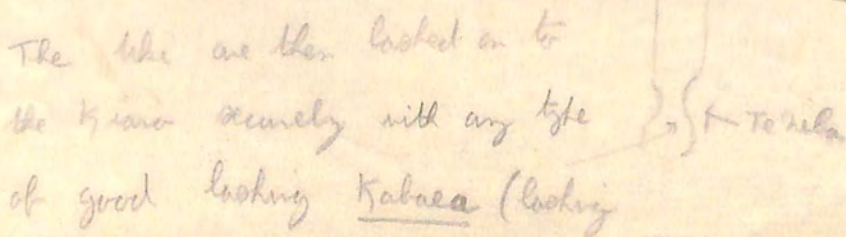 The like are then lashed on to
the Kiaro securely with any type
of good lashing Kabaea (lashing